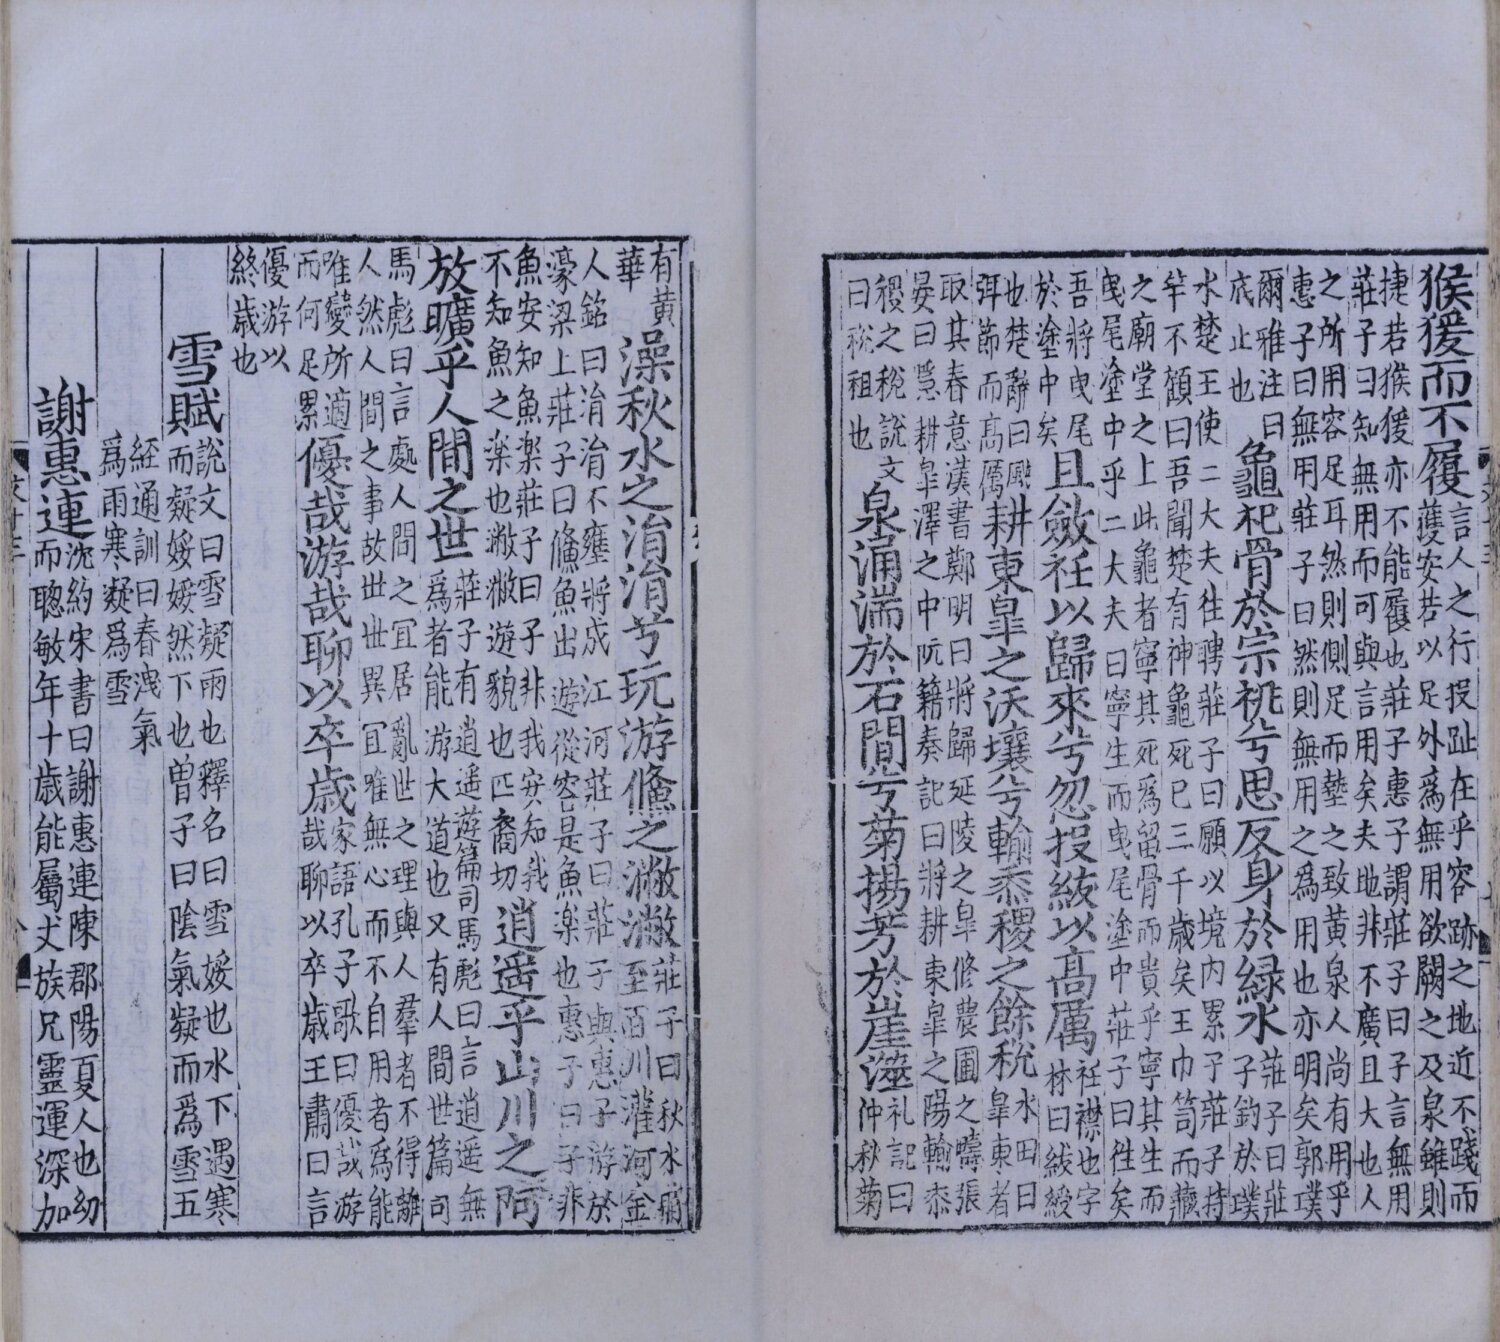 猴猨而不履
言人之行投趾在乎容跡之地近不踐而
獲安若以足外爲無用欲闕之及泉雖則
捷若猴猨亦不能履也莊子惠子謂莊子曰子言無用
莊子曰知無用而可與言用矣夫地非不廣且大也人
之所用容足耳然則側足而墊之致黄泉人尚有用乎
惠子曰無用莊子曰然則無用之為用也亦明矣郭璞
爾雅注曰
底止也
龜祀骨於宗祧兮思反身於緑水
莊子曰莊
子釣於璞
水楚王使二大夫往聘莊子曰願以境内累子莊子持
竿不顧曰吾聞楚有神龜死已三千歲矣王巾笥而藏
之廟堂之上此龜者寧其死爲留骨而貴乎寧其生而
曳尾塗中乎二大夫曰寧生而曳尾塗中莊子曰徃矣
吾將曳尾
於塗中矣
且斂衽以歸來兮忽投紱以高厲
衽襟也字
林曰紱綬
也楚辭曰
弭節而高厲
耕東皐之沃壤兮輸黍稷之餘稅
水田曰
皐東者
取其春意漢書鄭明曰將歸延陵之皐修農圃之疇張
晏曰耕皐澤之中阮籍奏記曰將耕東皐之陽輸黍
稷之稅說文
曰稅租也
泉涌湍於石間兮菊揚芳於崖澨
礼記曰
仲秋菊
有黄
華
澡秋水之涓涓兮玩游鯈之潎潎
莊子曰秋水
至百川灌河金
人銘曰涓涓不壅將成江河莊子曰莊子與惠子游於
濠梁上莊子曰鯈魚出遊從容是魚楽也惠子曰子非
魚安知魚楽莊子曰子非我安知我
不知魚之楽也潎潎遊貌也匹裔切
逍遥乎山川之阿
放曠乎人間之世
莊子有逍遥遊篇司馬彪曰言逍遥無
爲者能游大道也又有人間世篇司
馬彪曰言處人間之宜居亂世之理與人羣者不得離
人然人間之事故世世異宜唯無心而不自用者為能
唯變所適
而何足累
優哉游哉聊以卒歲
家語孔子歌曰優哉游
哉聊以卒歲王肅曰言
優游以
終歲也
雪賦
說文曰雪凝雨也釋名曰雪媛也水下遇寒
而凝媛媛然下也曽子曰陰氣凝而爲雪五
經通訓曰春洩氣
爲雨寒凝爲雪
謝惠連
沈約宋書曰謝惠連陳郡陽夏人也幼
而聦敏年十歲能屬文族兄靈運深加